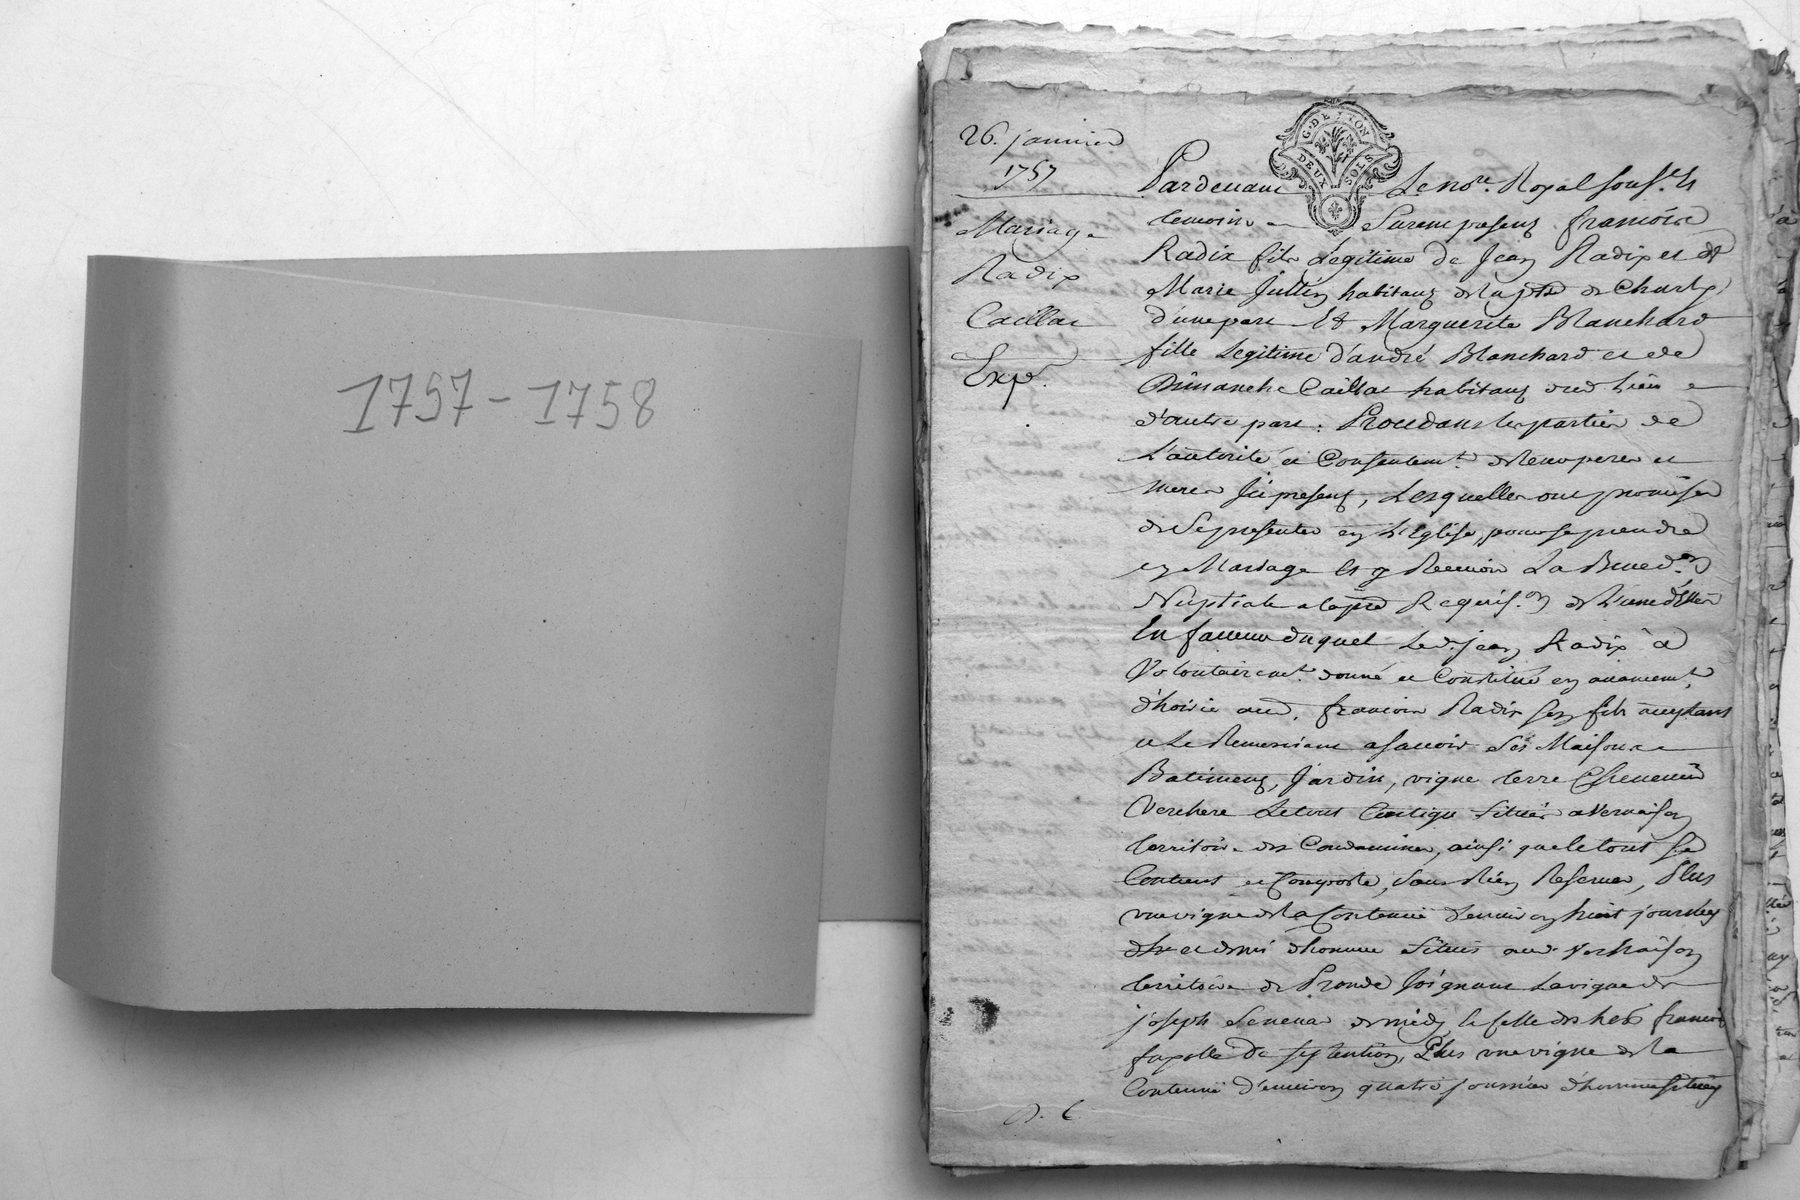 1757-1758
26. janvier
1757
Mariage
Radix
Caillat
Exp.
G. DE LYON
DEUX SOLS
Pardevant Le no.re Royal sous.é &
temoins Furent presents francois
Radix fils Legitime de Jean Radix et de
Marie Jullien habitans de la psse de Charly
d'une part Et Marguerite Blanchard
fille Legitime d'andré Blanchard et de
Dimanche Caillat habitans dud Lieu
d'autre part. Procedans les parties de
L'autorité et Consentem.t de leurs peres et
meres Ici presents, Lesquelles ont promises
de Se presenter en L'Eglise, pour se prendre
en Mariage et y Recevoir La Bened.on
Nuptiale a la pre Requis.on de L'une d'elles
En faveur duquel Led. jean Radix a
Volontairem.t donné et Constitué en avancem.t
d'hoirie aud. francois Radix son fils acceptant
et Le Remerciant a savoir Ses Maisons
Batiments, Jardin, vigne terre Chenevier
Verchere Le tout Contigu Situés a Vernaison
territoire des Condamines, ainsi que le tout Se
Contient et Comporte, Sans Rien Reserver, Plus
une vigne de la Contenue d'environ huit journées
et demi d'homme Situés aud. Vernaison
territoire de Joignant La vigne de
joseph de midy, celle des her francois
de septentrion, Plus une vigne de la
Contenue d'environ quatre journées d'homme Située